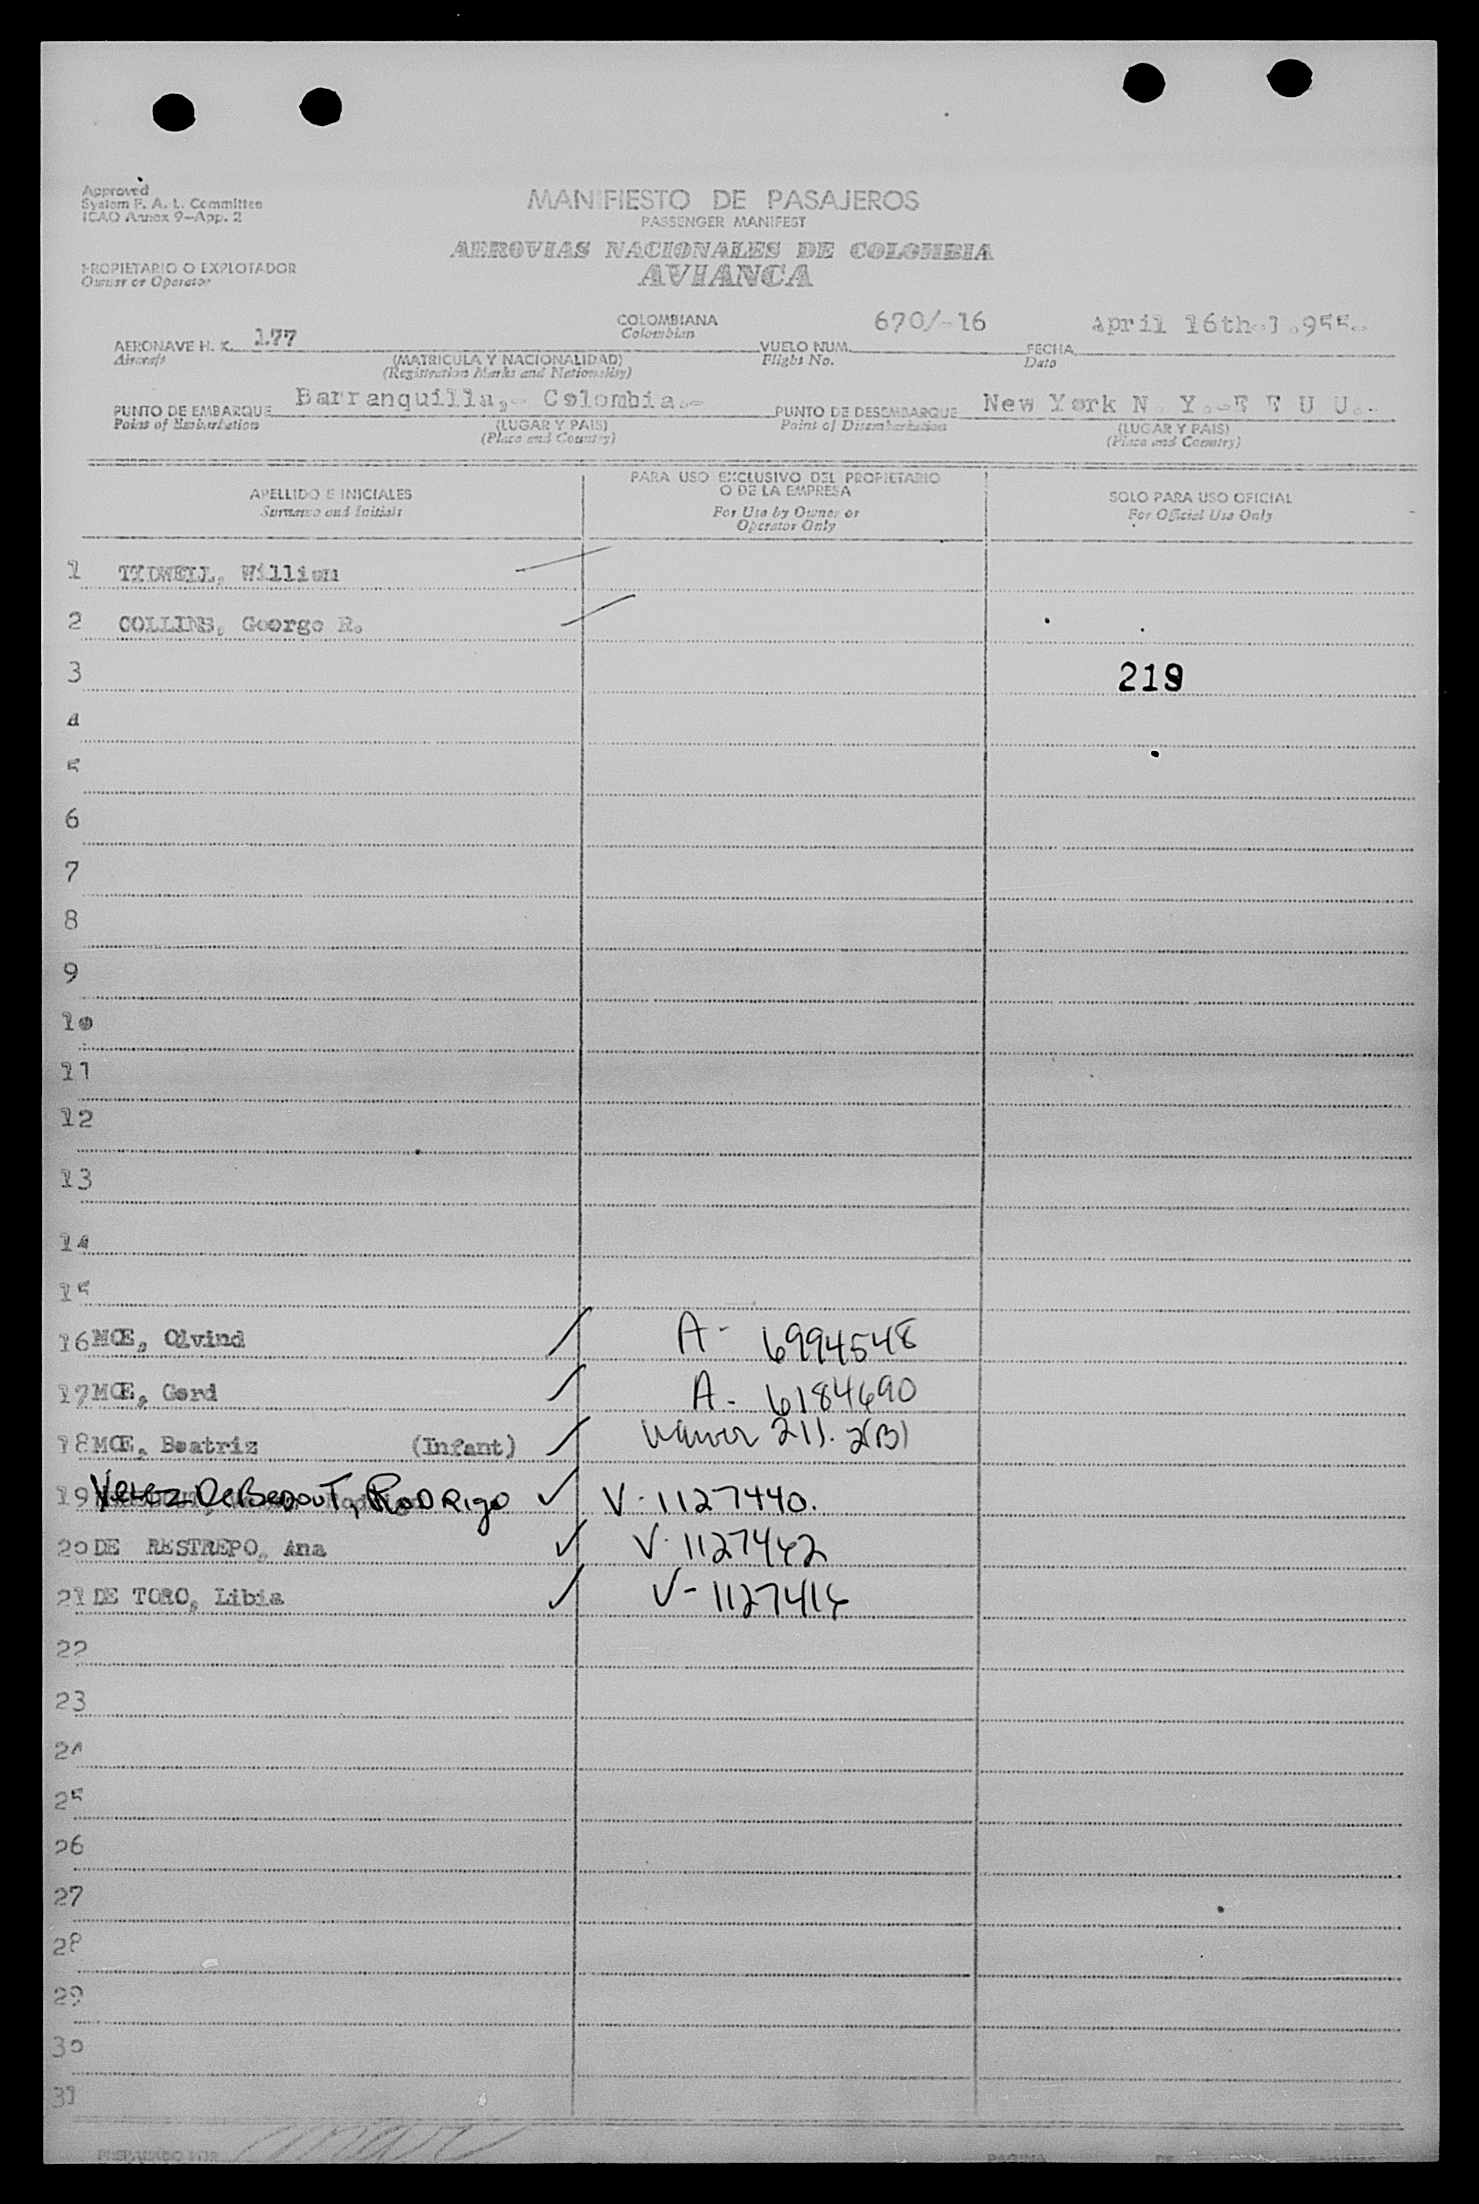 Approved
System F. A. L. Committee
ICAO Annex 9-App. 2
MANIFIESTO DE PASAJEROS
PASSENGER MANIFEST
AEROVIAS NACIONALES DE COLOMBIA
AVIANCA
PROPIETARIO O EXPLOTADOR
Owner or Operator
AERONAVE H. K. 177 COLOMBIANA VUELO NUM. 670/-16 FECHA April 16th-1.955.-
Aircraft (MATRICULA Y NACIONALIDAD) Colombian Flight No. Date
(Registration Marks and Nationality)
PUNTO DE EMBARQUE Barranquilla,- Colombia.- PUNTO DE DESEMBARQUE New York N. Y.-E E U U.-
Point of Embarkation (LUGAR Y PAIS) Point of Disembarkation (LUGAR Y PAIS)
(Place and Country) (Place and Country)
APELLIDO E INICIALES
Surname and Initials
PARA USO EXCLUSIVO DEL PROPIETARIO
O DE LA EMPRESA
For Use by Owner or
Operator Only
SOLO PARA USO OFICIAL
For Official Use Only
1 TIDWELL, William
2 COLLINS, George R.
3 219
4
5
6
7
8
9
10
11
12
13
14
15
16 MOE, Olvind A- 6994548
17 MOE, Gerd A- 6184690
18 MOE, Beatriz (Infant) Waiver 211. 2(B)
19 Velez DeBedouT, RODRIgo V-1127440.
20 DE RESTREPO, Ana V-1127442
21 DE TORO, Libia V-1127414
22
23
24
25
26
27
28
29
30
31
PREPARADO POR
PAGINA DE